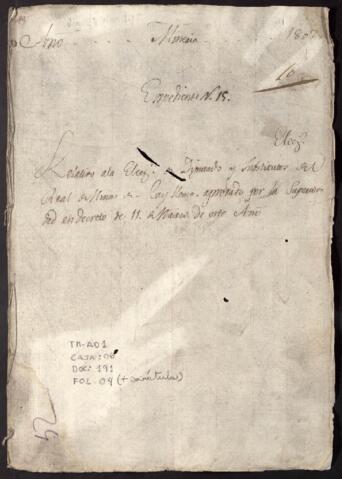 Año Minería 180
10
Expediente N. 18.
Elecz.
Relativo ala Elecz. de Diputado y Substitutos del
Real de Minas de Caylloma, aprovado por la Superiori
dad en decreto de 11. de Marzo de este Año
TM-AD1
CAJA: 08
DOC: 191
FOL: 04 (+ carátula)